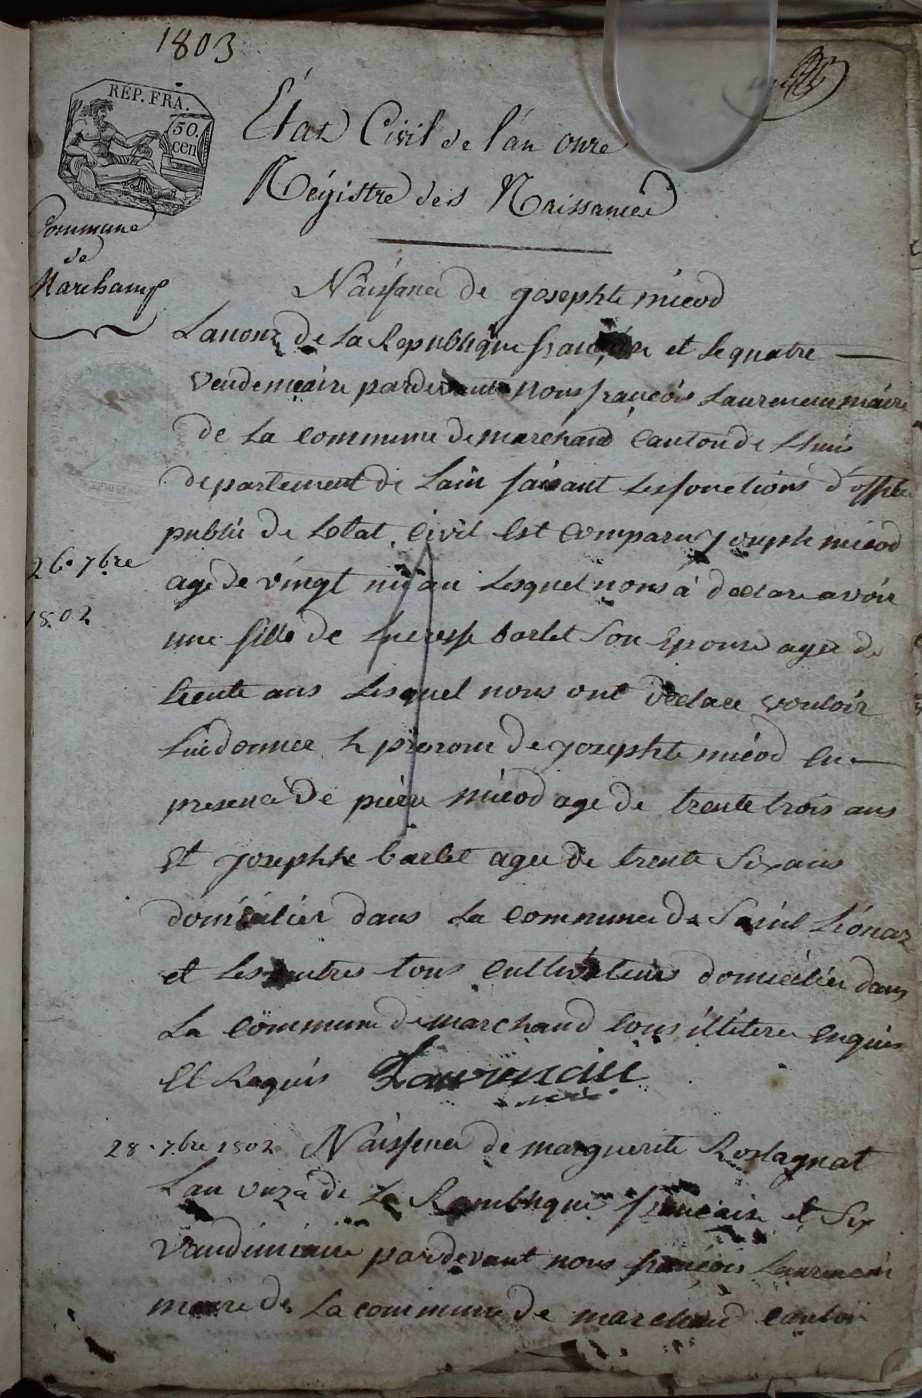 1803
RÉP. FRA.
50.
cen
État Civil de l'an onze
Régistre des Naissances
Commune
de
Marchamp
Naissance de josephte micod
Lanonz de La Republique française et le quatre
vendemeaire pardevant nous françois Laurencin maire
de La commune de marchand Canton de Lhuis
departement de Lain faisant les fonctions d'officie
public de Letat Civil est comparu joseph micod
26. 7bre
1802
age de vingt neu an Lesquel nous à declare avoir
une fille de Lucresse barlet Son Epouse agee de
trente ans Lesquel nous ont declare vouloir
Lui donner le prenom de josephte micod En
presence de pierre micod age de trente trois ans
Et josephte barlet agee de trente Six ans
domicilier dans La commune de Saint
et les autres tous cultivateurs domicilier dans
La commune de marchand tous illitere enquis
Et Requis Laurencin
28. 7bre 1802 Naissence de marguerite Roslagnat
Lan onze de La Republique francaise et Six
vandimiaire pardevant nous francois Laurencin
maire de La commune de marchand canton